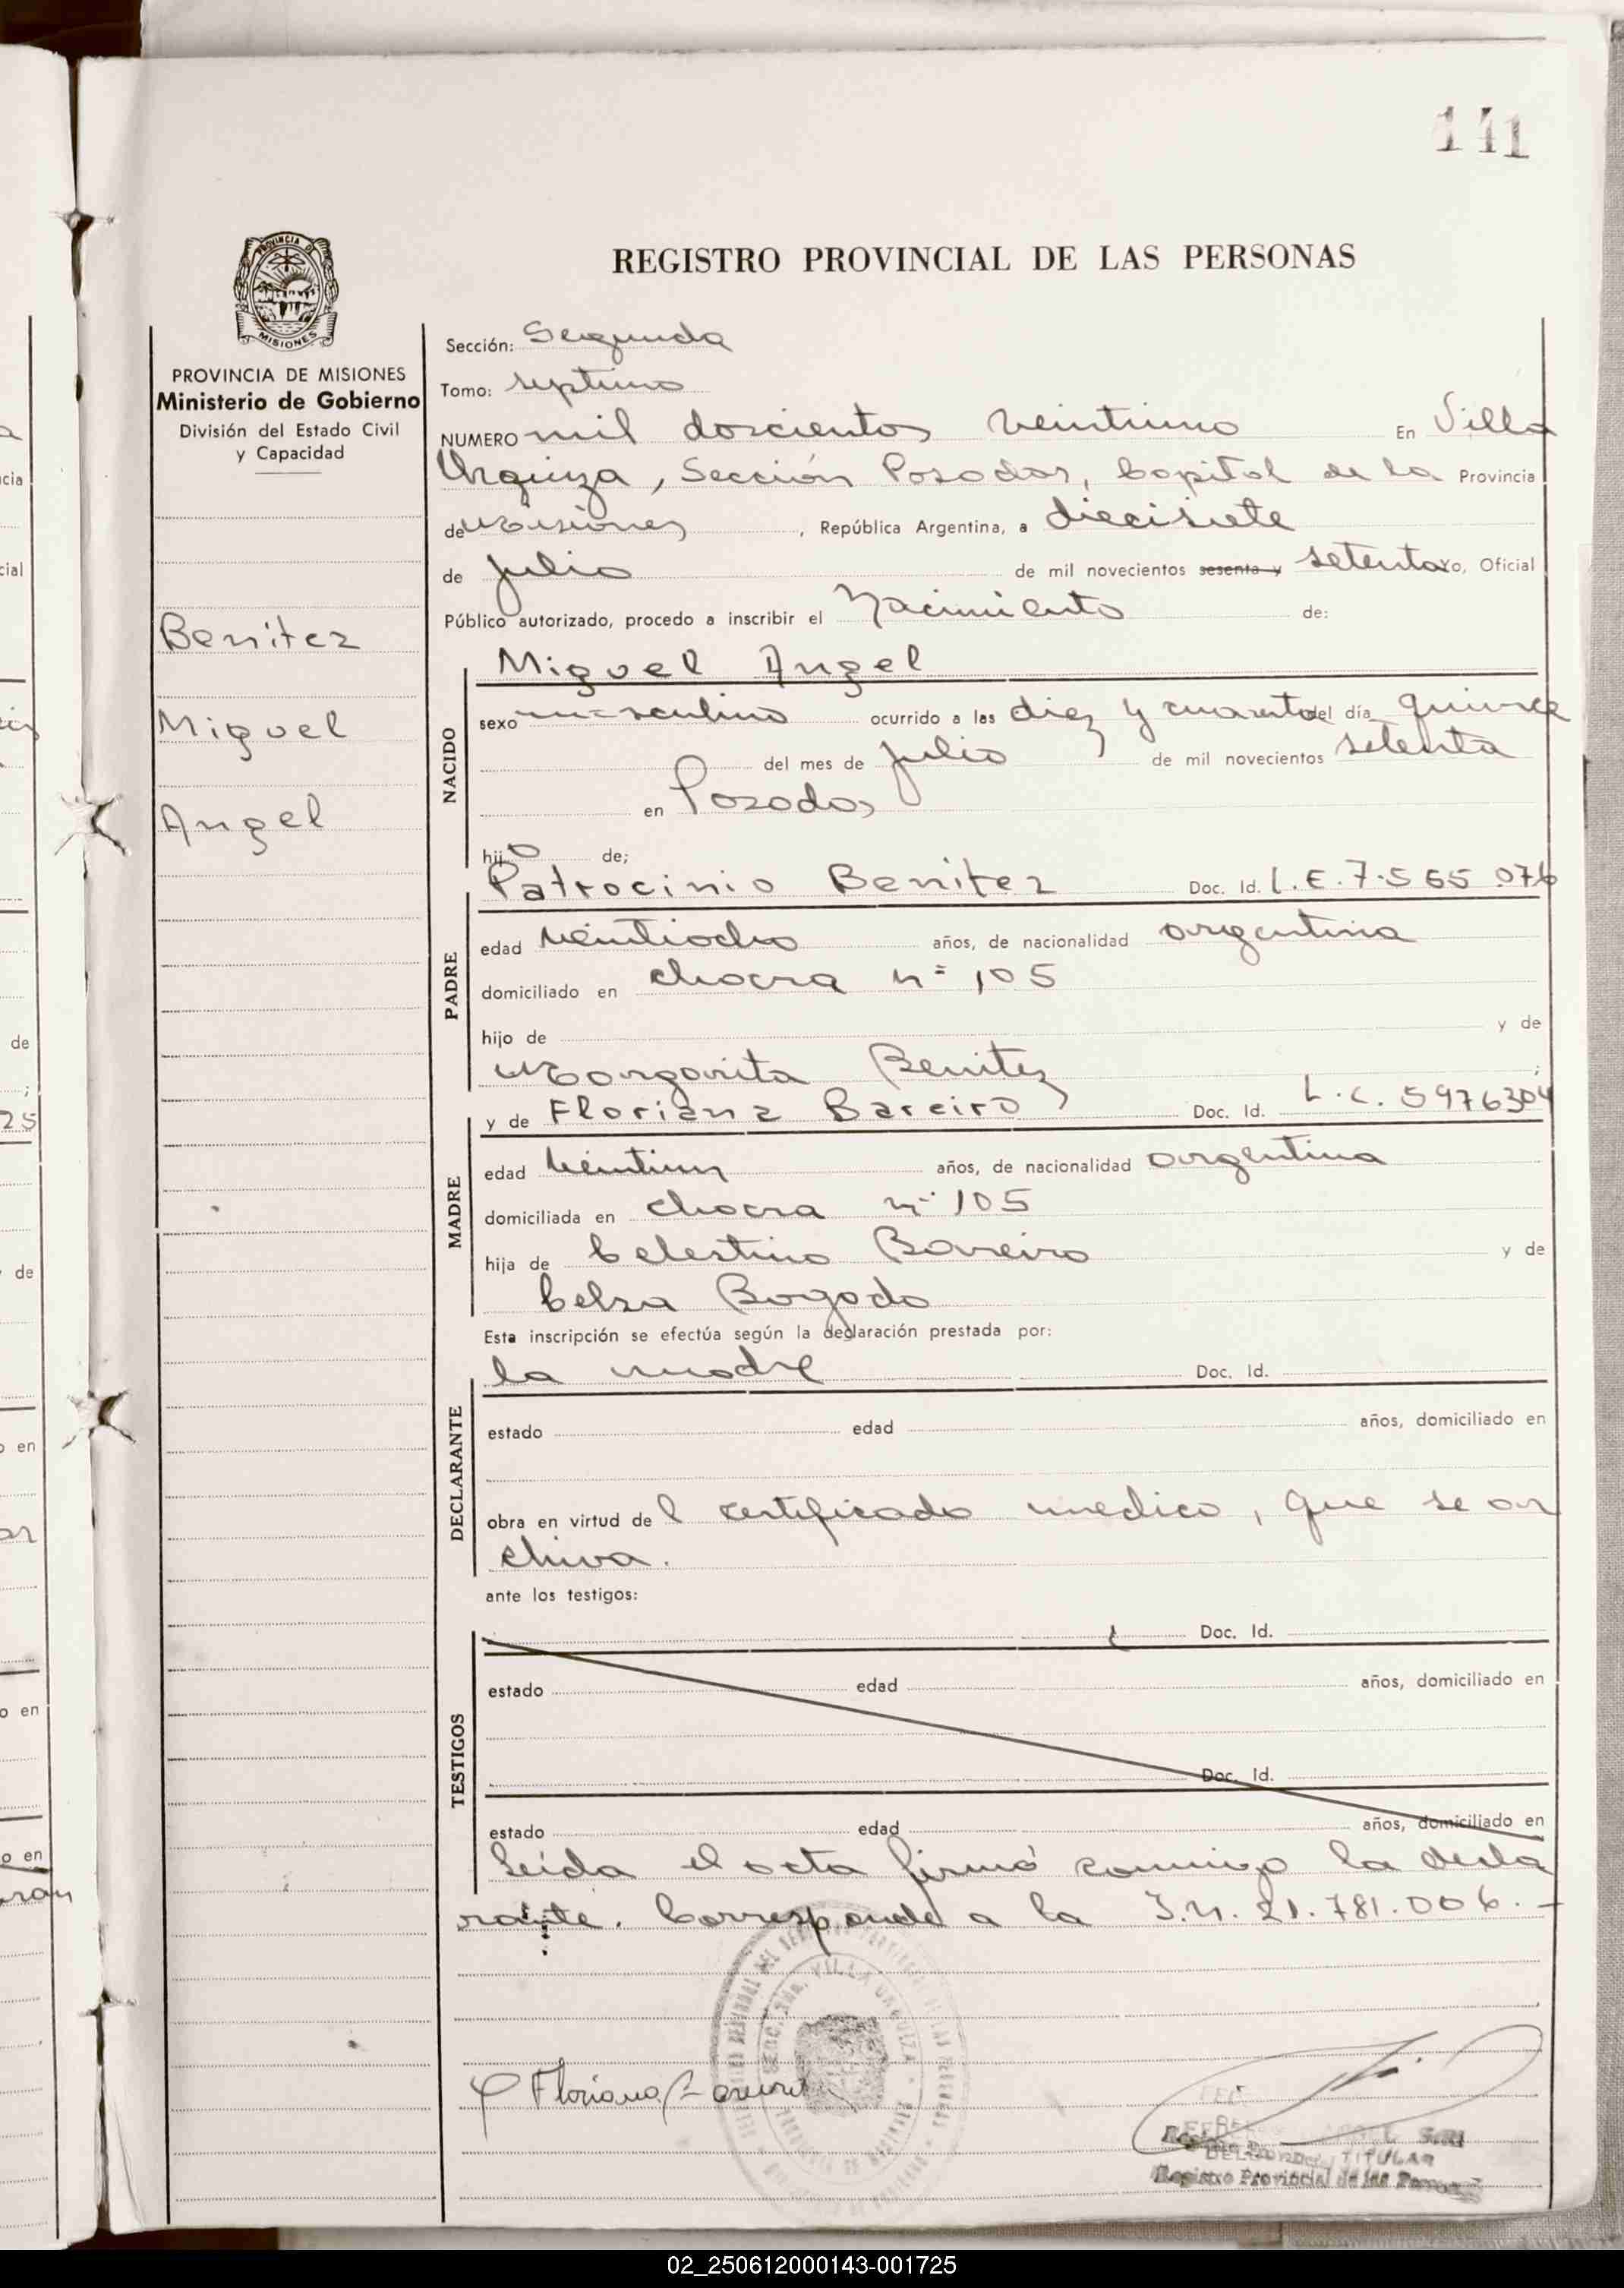 141
REGISTRO PROVINCIAL DE LAS PERSONAS
PROVINCIA DE
MISIONES
PROVINCIA DE MISIONES
Ministerio de Gobierno
División del Estado Civil
y Capacidad
Benitez
Miguel
Angel
Sección: Segunda
Tomo: septimo
NUMERO mil doscientos veintiuno En Villa
Urquiza, Sección Posadas, Capital de la Provincia
de Misiones, República Argentina, a diecisiete
de julio de mil novecientos sesenta y setenta yo, Oficial
Público autorizado, procedo a inscribir el Nacimiento de:
Miguel Angel
NACIDO
sexo masculino ocurrido a las diez y cuarto del día quince
del mes de julio de mil novecientos setenta
en Posadas
hijo de;
Patrocinio Benitez Doc. Id. L.E. 7.565.076
PADRE
edad veintiocho años, de nacionalidad argentina
domiciliado en chacra nº 105
hijo de y de
Margarita Benitez ;
y de Floriana Bareiro Doc. Id. L.C. 5976304
MADRE
edad veintiun años, de nacionalidad argentina
domiciliada en chacra nº 105
hija de Celestino Bareiro y de
Celsa Bogado
Esta inscripción se efectúa según la declaración prestada por:
la madre Doc. Id.
DECLARANTE
estado edad años, domiciliado en
obra en virtud del certificado medico, que se ar
chiva.
ante los testigos:
Doc. Id.
TESTIGOS
estado edad años, domiciliado en
Doc. Id.
estado edad años, domiciliado en
Leída el acta firmó conmigo la decla
rante. Corresponde a la I.N. 21.781.006.-
VILLA URQUIZA
Floriana Bareiro
TITULAR
Registro Provincial de las
02_250612000143-001725